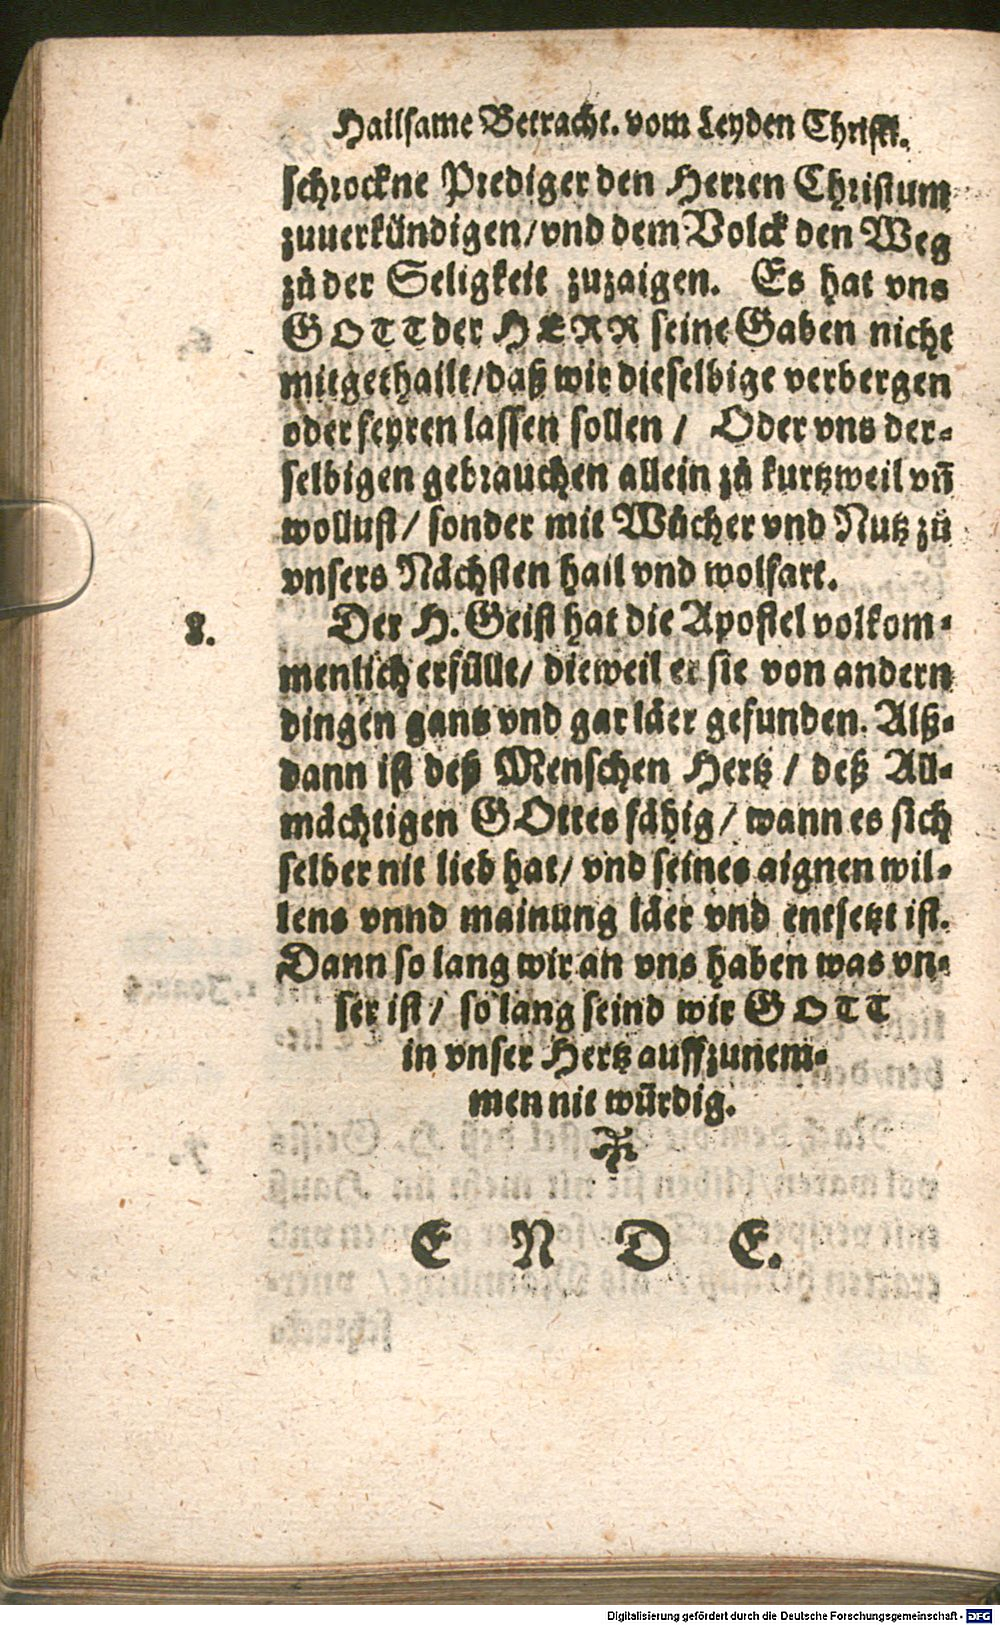 Hailsame Betracht. vom Leyden Christi.
schrockne Prediger den Herren Christum
zuuerkündigen/vnd dem Volck den Weg
zů der Seligkeit zuzaigen. Es hat vns
GOTT der HERR seine Gaben nicht
mitgethailt/daß wir dieselbige verbergen
oder feyren lassen sollen / Oder vns der-
selbigen gebrauchen allein zů kurtzweil vñ
wollust/ sonder mit Wůcher vnd Nutz zů
vnsers Nächsten hail vnd wolfart.
8. Der H. Geist hat die Apostel volkom-
menlich erfüllt/ dieweil er sie von andern
dingen gantz vnd gar läer gefunden. Alß-
dann ist deß Menschen Hertz / deß All-
mächtigen GOttes fähig/ wann es sich
selber nit lieb hat/ vnd seines aignen wil-
lens vnnd mainung läer vnd entsetzt ist.
Dann so lang wir an vns haben was vn-
ser ist/ so lang seind wir GOTT
in vnser Hertz auffzunem-
men nit würdig.
E N D E.
Digitalisierung gefördert durch die Deutsche Forschungsgemeinschaft - DFG